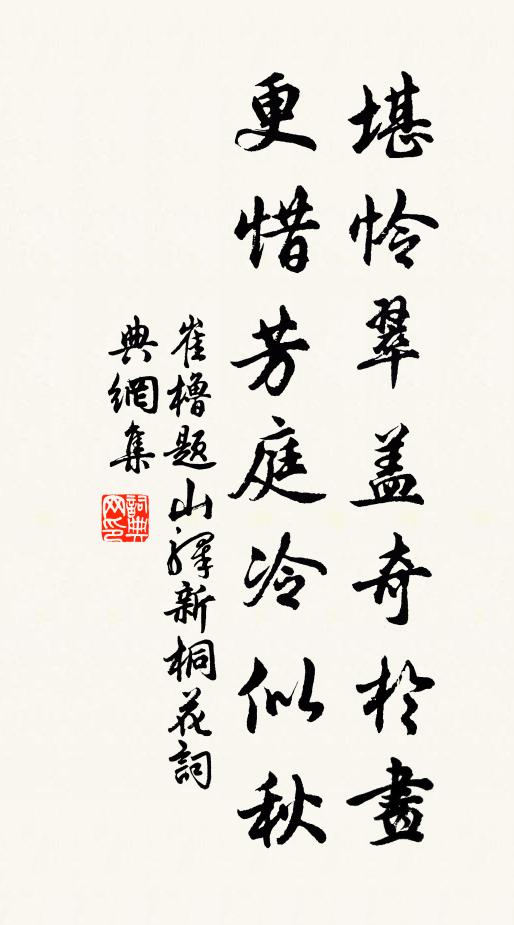 堪怜翠盖奇於畫
更惜芳庭冷似秋
崔櫓題山驛新桐花詞
典網集
詞典網印